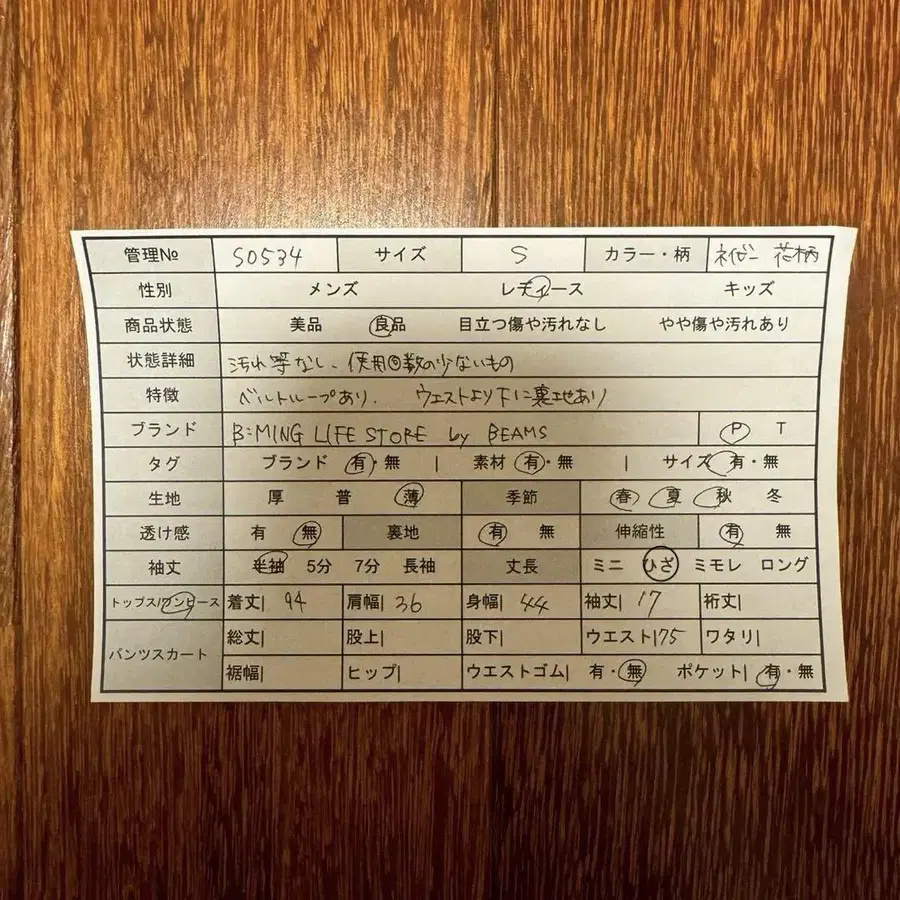 管理№ S0534 サイズ S カラー・柄 ネイビー 花柄
性別 メンズ レディース キッズ
商品状態 美品 良品 目立つ傷や汚れなし やや傷や汚れあり
状態詳細 汚れ等なし、使用回数の少ないもの
特徴 ベルトループあり. ウエストより下に裏地あり
ブランド B:MING LIFE STORE by BEAMS P T
タグ ブランド 有・無 | 素材 有・無 | サイズ 有・無
生地 厚 普 薄 季節 春 夏 秋 冬
透け感 有 無 裏地 有 無 伸縮性 有 無
袖丈 半袖 5分 7分 長袖 丈長 ミニ ひざ ミモレ ロング
トップス/ワンピース 着丈| 94 肩幅| 36 身幅| 44 袖丈| 17 裄丈|
パンツスカート 総丈| 股上| 股下| ウエスト|75 ワタリ|
裾幅| ヒップ| ウエストゴム| 有・無 ポケット| 有・無